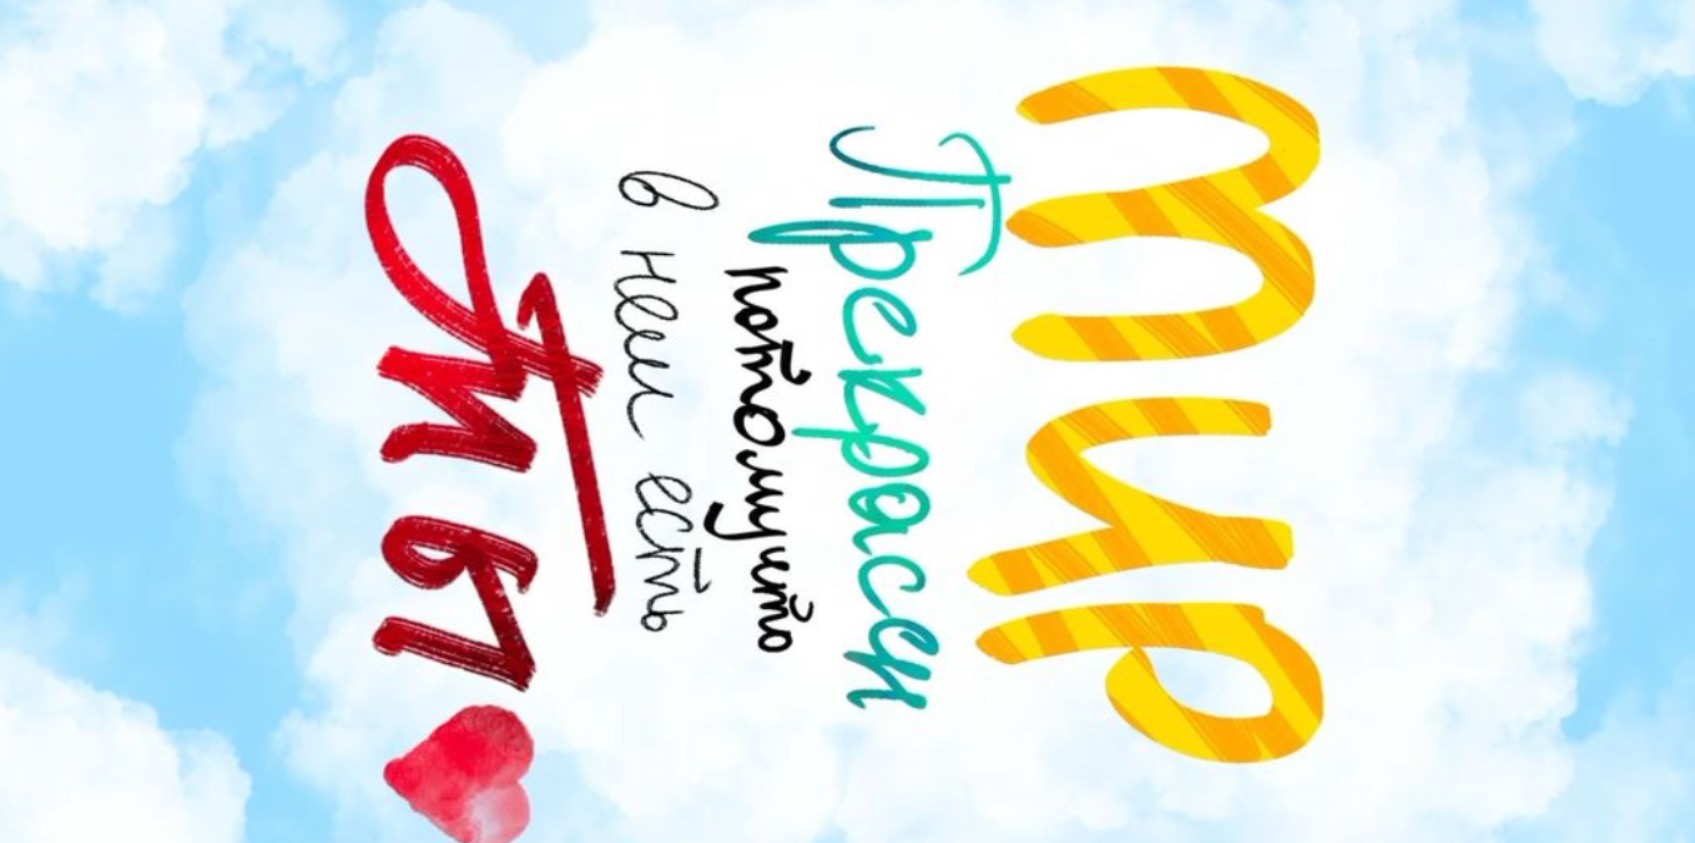 мир
Прекрасен
потому что
в нем есть
Ты